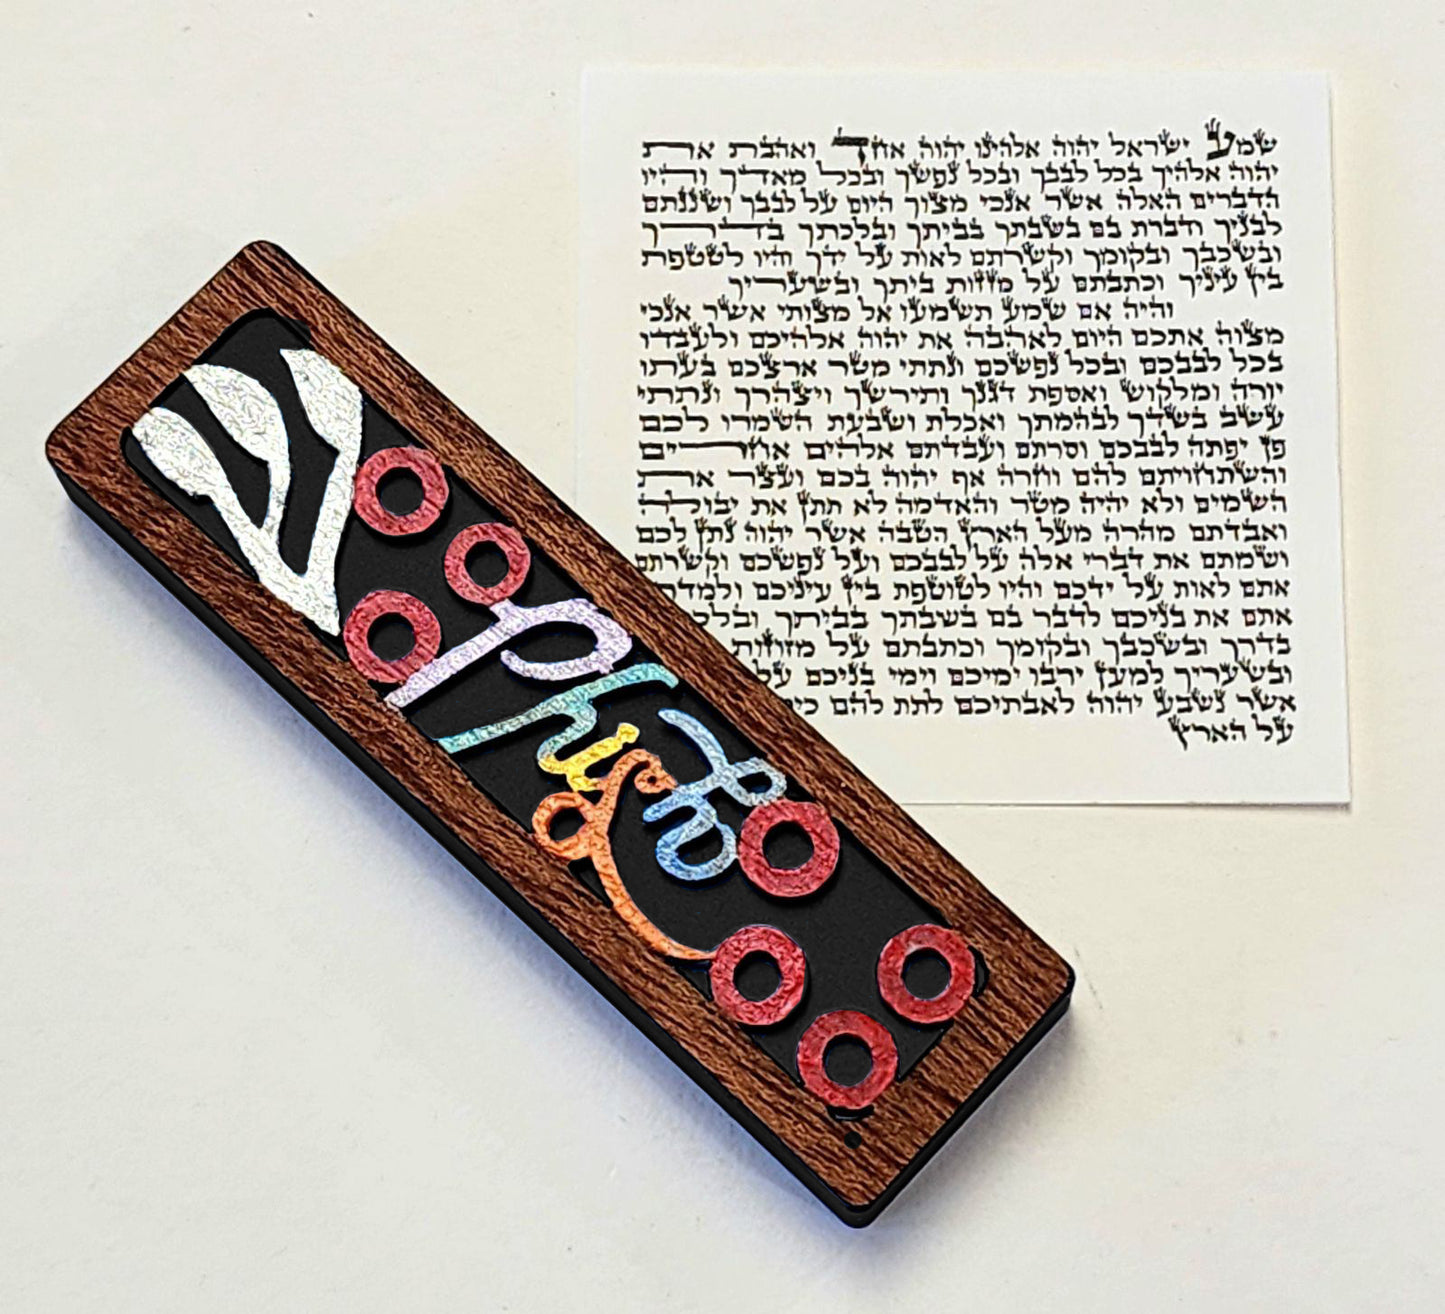 ש
Phish
שמע ישראל יהוה אלהינו יהוה אחד ואהבת את
יהוה אלהיך בכל לבבך ובכל נפשך ובכל מאדך והיו
הדברים האלה אשר אנכי מצוך היום על לבבך ושננתם
לבניך ודברת בם בשבתך בביתך ובלכתך בדרך
ובשכבך ובקומך וקשרתם לאות על ידך והיו לטטפת
בין עיניך וכתבתם על מזזות ביתך ובשעריך
והיה אם שמע תשמעו אל מצותי אשר אנכי
מצוה אתכם היום לאהבה את יהוה אלהיכם ולעבדו
בכל לבבכם ובכל נפשכם ונתתי מטר ארצכם בעתו
יורה ומלקוש ואספת דגנך ותירשך ויצהרך ונתתי
עשב בשדך לבהמתך ואכלת ושבעת השמרו לכם
פן יפתה לבבכם וסרתם ועבדתם אלהים אחרים
והשתחויתם להם וחרה אף יהוה בכם ועצר את
השמים ולא יהיה מטר והאדמה לא תתן את יבולה
ואבדתם מהרה מעל הארץ הטבה אשר יהוה נתן לכם
ושמתם את דברי אלה על לבבכם ועל נפשכם וקשרתם
אתם לאות על ידכם והיו לטוטפת בין עיניכם
אתם את בניכם לדבר בם בשבתך בביתך
בדרך ובשכבך ובקומך וכתבתם על מזוזות
ובשעריך למען ירבו ימיכם וימי בניכם על
אשר נשבע יהוה לאבתיכם לתת להם
על הארץ